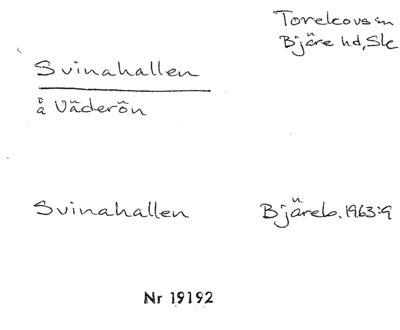 Torekovs sn
Bjäre hd, Sk
Svinahallen
å Väderön
Svinahallen Bjäreb. 1963:9
Nr 19192